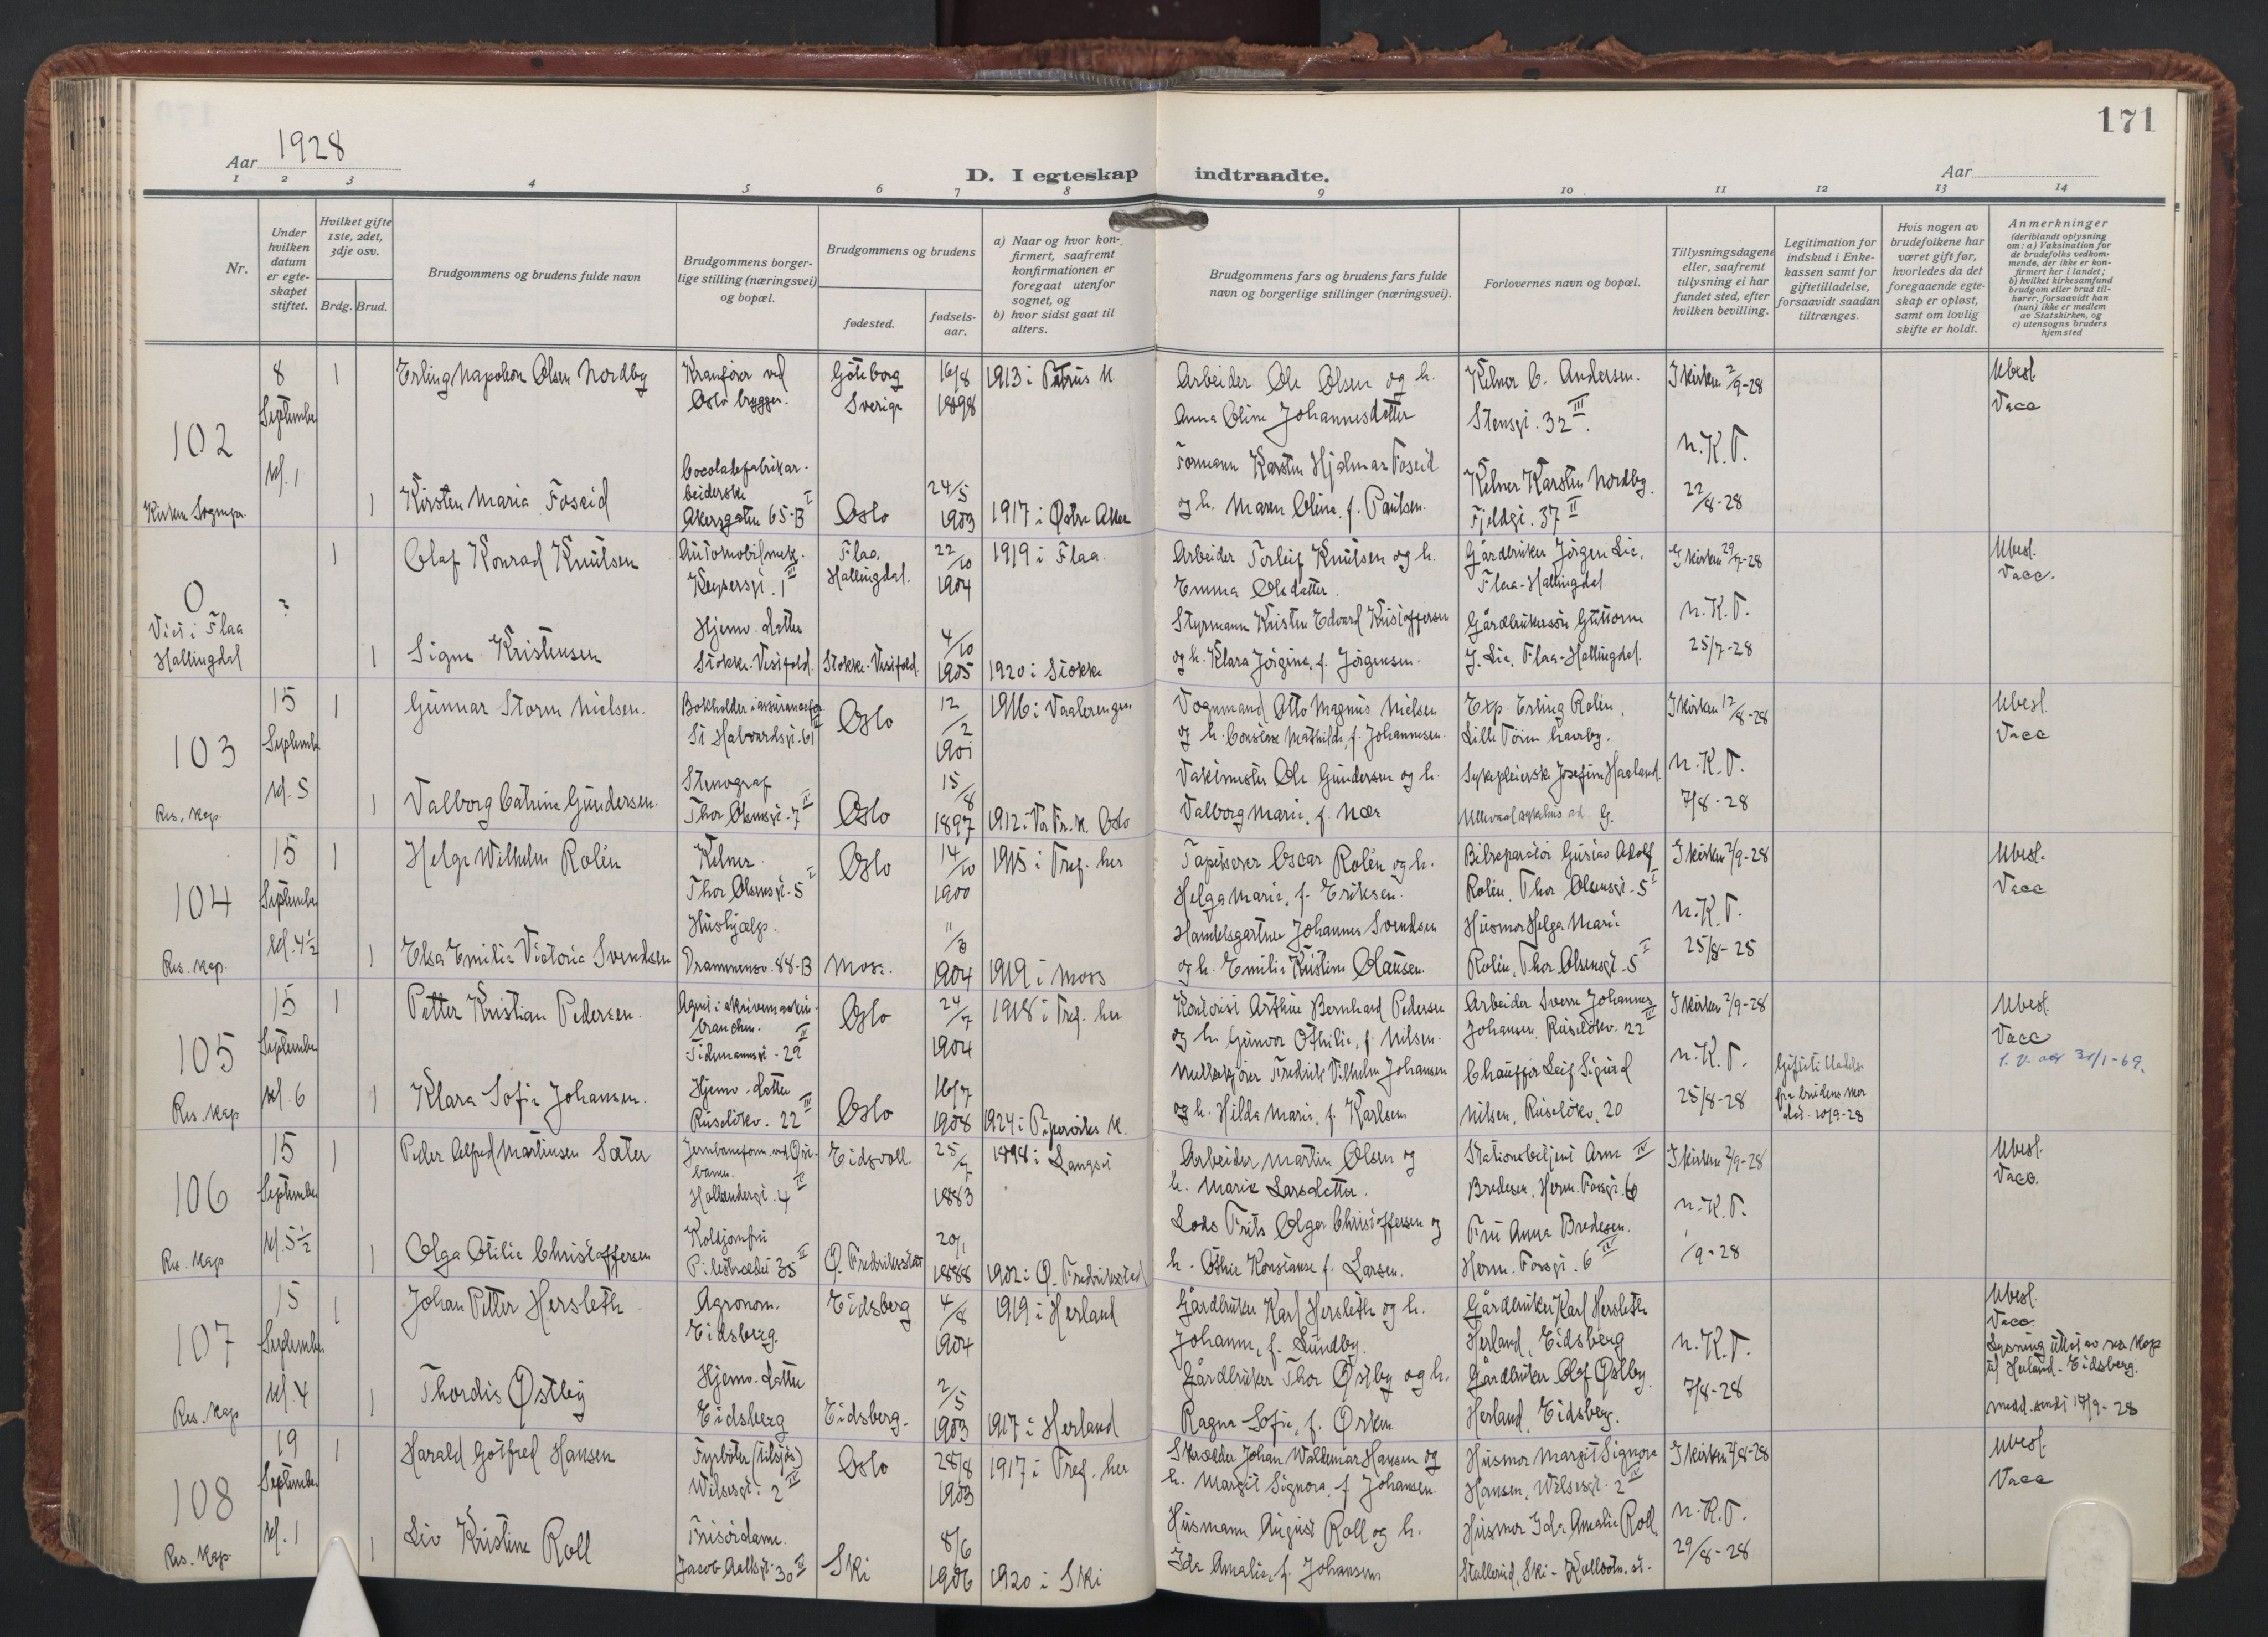 171
Aar 1928
D. I egteskap indtraadte.
Aar
1 2 3 4 5 6 7 8 9 10 11 12 13 14
Nr.
Under hvilken datum er egte-skapet stiftet.
Hvilket gifte 1ste, 2det, 3dje osv.
Brdg. Brud.
Brudgommens og brudens fulde navn
Brudgommens borger-lige stilling (næringsvei) og bopæl.
Brudgommens og brudens
fødested.
fødsels-aar.
a) Naar og hvor kon-firmert, saafremt konfirmationen er foregaat utenfor sognet, og
b) hvor sidst gaat til alters.
Brudgommens fars og brudens fars fulde navn og borgerlige stillinger (næringsvei).
Forlovernes navn og bopæl.
Tillysningsdagene eller, saafremt tillysning ei har fundet sted, efter hvilken bevilling.
Legitimation for indskud i Enke-kassen samt for giftetilladelse, forsaavidt saadan tiltrænges.
Hvis nogen av brudefolkene har været gift før, hvorledes da det foregaaende egte-skap er opløst, samt om lovlig skifte er holdt.
Anmerkninger
(deriblandt oplysning om: a) Vaksination for de brudefolks vedkom-mende, der ikke er kon-firmert her i landet; b) hvilket kirkesamfund brudgom eller brud til-hører, forsaavidt han (hun) ikke er medlem av Statskirken, og c) utensogns bruders hjemsted
102
8 September kl. 1
1
Erling Napoleon Olsen Nordby
Kranfører ved Oslo brygger.
Göteborg Sverige
16/8 1898
1913 i Petrus K.
Arbeider Ole Olsen og h. Anna Oline Johannesdatter
Kelner C. Andersen. Stensgt. 32 III.
I kirken 2/9-28
Ubesl. Vacc
1
Kirsten Maria Foseid
Akersgaten 65-B I
Oslo
24/5 1903
1917 i Østre Aker
Formann Karsten Hjalmar Foseid og h. Maren Oline, f. Paulsen.
Kelner Karsten Nordby. Fjeldgt. 37 II
n.K.T. 22/8-28
0
Viet i Flaa Hallingdal
?
1
Olaf Konrad Knutsen
Automobilmek. Keysersgt. 1 III
Flaa Hallingdal.
22/10 1904
1919 i Flaa.
Arbeider Torleif Knutsen og h. Emma Olsdatter.
Gårdbruker Jörgen Lie, Flaa-Hallingdal
I kirken 29/7-28
Ubesl. Vacc.
1
Signe Kristensen
Hjemv. datter Stokke. Vestfold.
Stokke. Vestfold.
4/10 1905
1920 i Stokke
Styrmann Kristen Edvard Kristoffersen og h. Klara Jörgine, f. Jörgensen.
Gårdbrukersön Guttorm J. Lie, Flaa-Hallingdal.
n.K.T. 25/7-28
103
Res. kap.
15 September kl. 5
1
Gunnar Storm Nielsen.
St Halvardsgt. 61 III
Oslo
12/2 1901
1916 i Vaalerengen
Vognmand Otto Magnus Nielsen og h. Constanse Mathilde, f. Johannesen.
Exp. Erling Rolén,
I kirken 12/8-28
Ubesl. Vacc
1
Valborg Catrine Gundersen.
Stenograf Thor Olsensgt. 7 IV
Oslo
15/8 1897
1912 i Vor Fr. K. Oslo
Vaktmester Ole Gundersen og h. Valborg Marie, f. Nær
Sykepleierske Josefine Haaland. Ullevaal sykehus
n.K.T. 7/8-28
104
Res. kap.
15 September kl. 4 1/2
1
Helge Wilhelm Rolén
Kelner. Thor Olsensgt. 5 I
Oslo
14/10 1900
1915 i Tref. her
Tapetserer Oscar Rolén og h. Helga Marie, f. Eriksen.
Bilreparatör Gustav Adolf Rolén, Thor Olsensgt. 5 I
I kirken 2/9-28
Ubesl. Vacc
1
Elsa Emilie Victoria Svendsen
Hushjælp. Drammensv. 88-B
Moss.
11/3 1904
1919 i Moss
Handelsgartner Johannes Svendsen og h. Emilie Kristine Olausen.
Husmor Helga Marie Rolén, Thor Olsensgt. 5 I
n.K.T. 25/8-28
105
Res. kap
15 September kl. 6
1
Petter Kristian Pedersen.
Agent i skrivemaskin-branchen. Tidemannsgt. 29 II
Oslo
24/7 1904
1918 i Tref. her
Kontorist Arthur Bernhard Pedersen og h. Gunvor Othilie, f. Nilsen.
Arbeider Sverre Johannes Johansen, Ruselökv. 22 III
I kirken 2/9-28
Ubesl. Vacc
31/1-69.
1
Klara Sofie Johansen.
Hjemv. datter Ruselökv. 22 III
Oslo
16/7 1908
1924 i Pipervikens K.
Fredrik Vilhelm Johansen og h. Hilda Marie, f. Karlsen
Chauffør Leif Sigurd Nilsen, Ruselökv. 20
n.K.T. 25/8-28
Giftetilladelse fra brudens mor dat. 10/9-28
106
Res. kap
15 September kl. 5 1/2
1
Peder Alfred Martinsen Sæter
Jernbaneform. ved Øst-banen. Hollendergt. 4 IV
Eidsvoll.
25/7 1883
1898 i Langset
Arbeider Martin Olsen og h. Marie Larsdatter.
Stationsbetjent Arne Bredesen, Herm. Fossgt. 6 IV
I kirken 2/9-28
Ubesl. Vacc.
1
Olga Otilie Christoffersen
Koldjomfru Pilestrædet 35 II
Ø. Fredrikstad
20/1 1888
1902 i Ø. Fredrikstad
Lods Frits Olger Christoffersen og h. Othie Konstanse f. Larsen.
Fru Anna Bredesen. Herm. Fossgt. 6 IV
n.K.T. 1/9-28
107
Res. kap
15 September kl. 4
1
Johan Petter Hersleth
Agronom. Eidsberg.
Eidsberg
4/8 1904
1919 i Herland
Gårdbruker Karl Hersleth og h. Johanne, f. Lundby.
Gårdbruker Karl Hersleth Herland, Eidsberg
n.K.T. 7/8-28
Ubesl. Vacc. Lysning uttat av res. kap til Herland-Eidsberg. medd. sendt 17/9-28
1
Thordis Østby
Hjemv. datter Eidsberg
Eidsberg.
2/5 1903
1917 i Herland
Gårdbruker Thor Østby og h. Ragna Sofie, f. Ørken.
Gårdbruker Olaf Østby. Herland, Eidsberg.
108
Res. kap.
19 September kl. 1
1
Harald Gotfred Hansen
Fyrböter (tilsjös) Wilsesgt. 2 IV
Oslo
28/8 1903
1917 i Tref. her
Skrædder Johan Waldemar Hansen og h. Margit Signora, f. Johansen.
Husmor Margit Signora Hansen, Wilsesgt. 2 IV
I kirken
Ubesl. Vacc
1
Liv Kristine Roll
Frisördame. Jacob Aallsgt. 30 IV
Ski
8/6 1906
1920 i Ski
Husmann August Roll og h. Ida Amalie, f. Johansen
Husmor Ida Amalie Roll,
n.K.T. 29/8-28